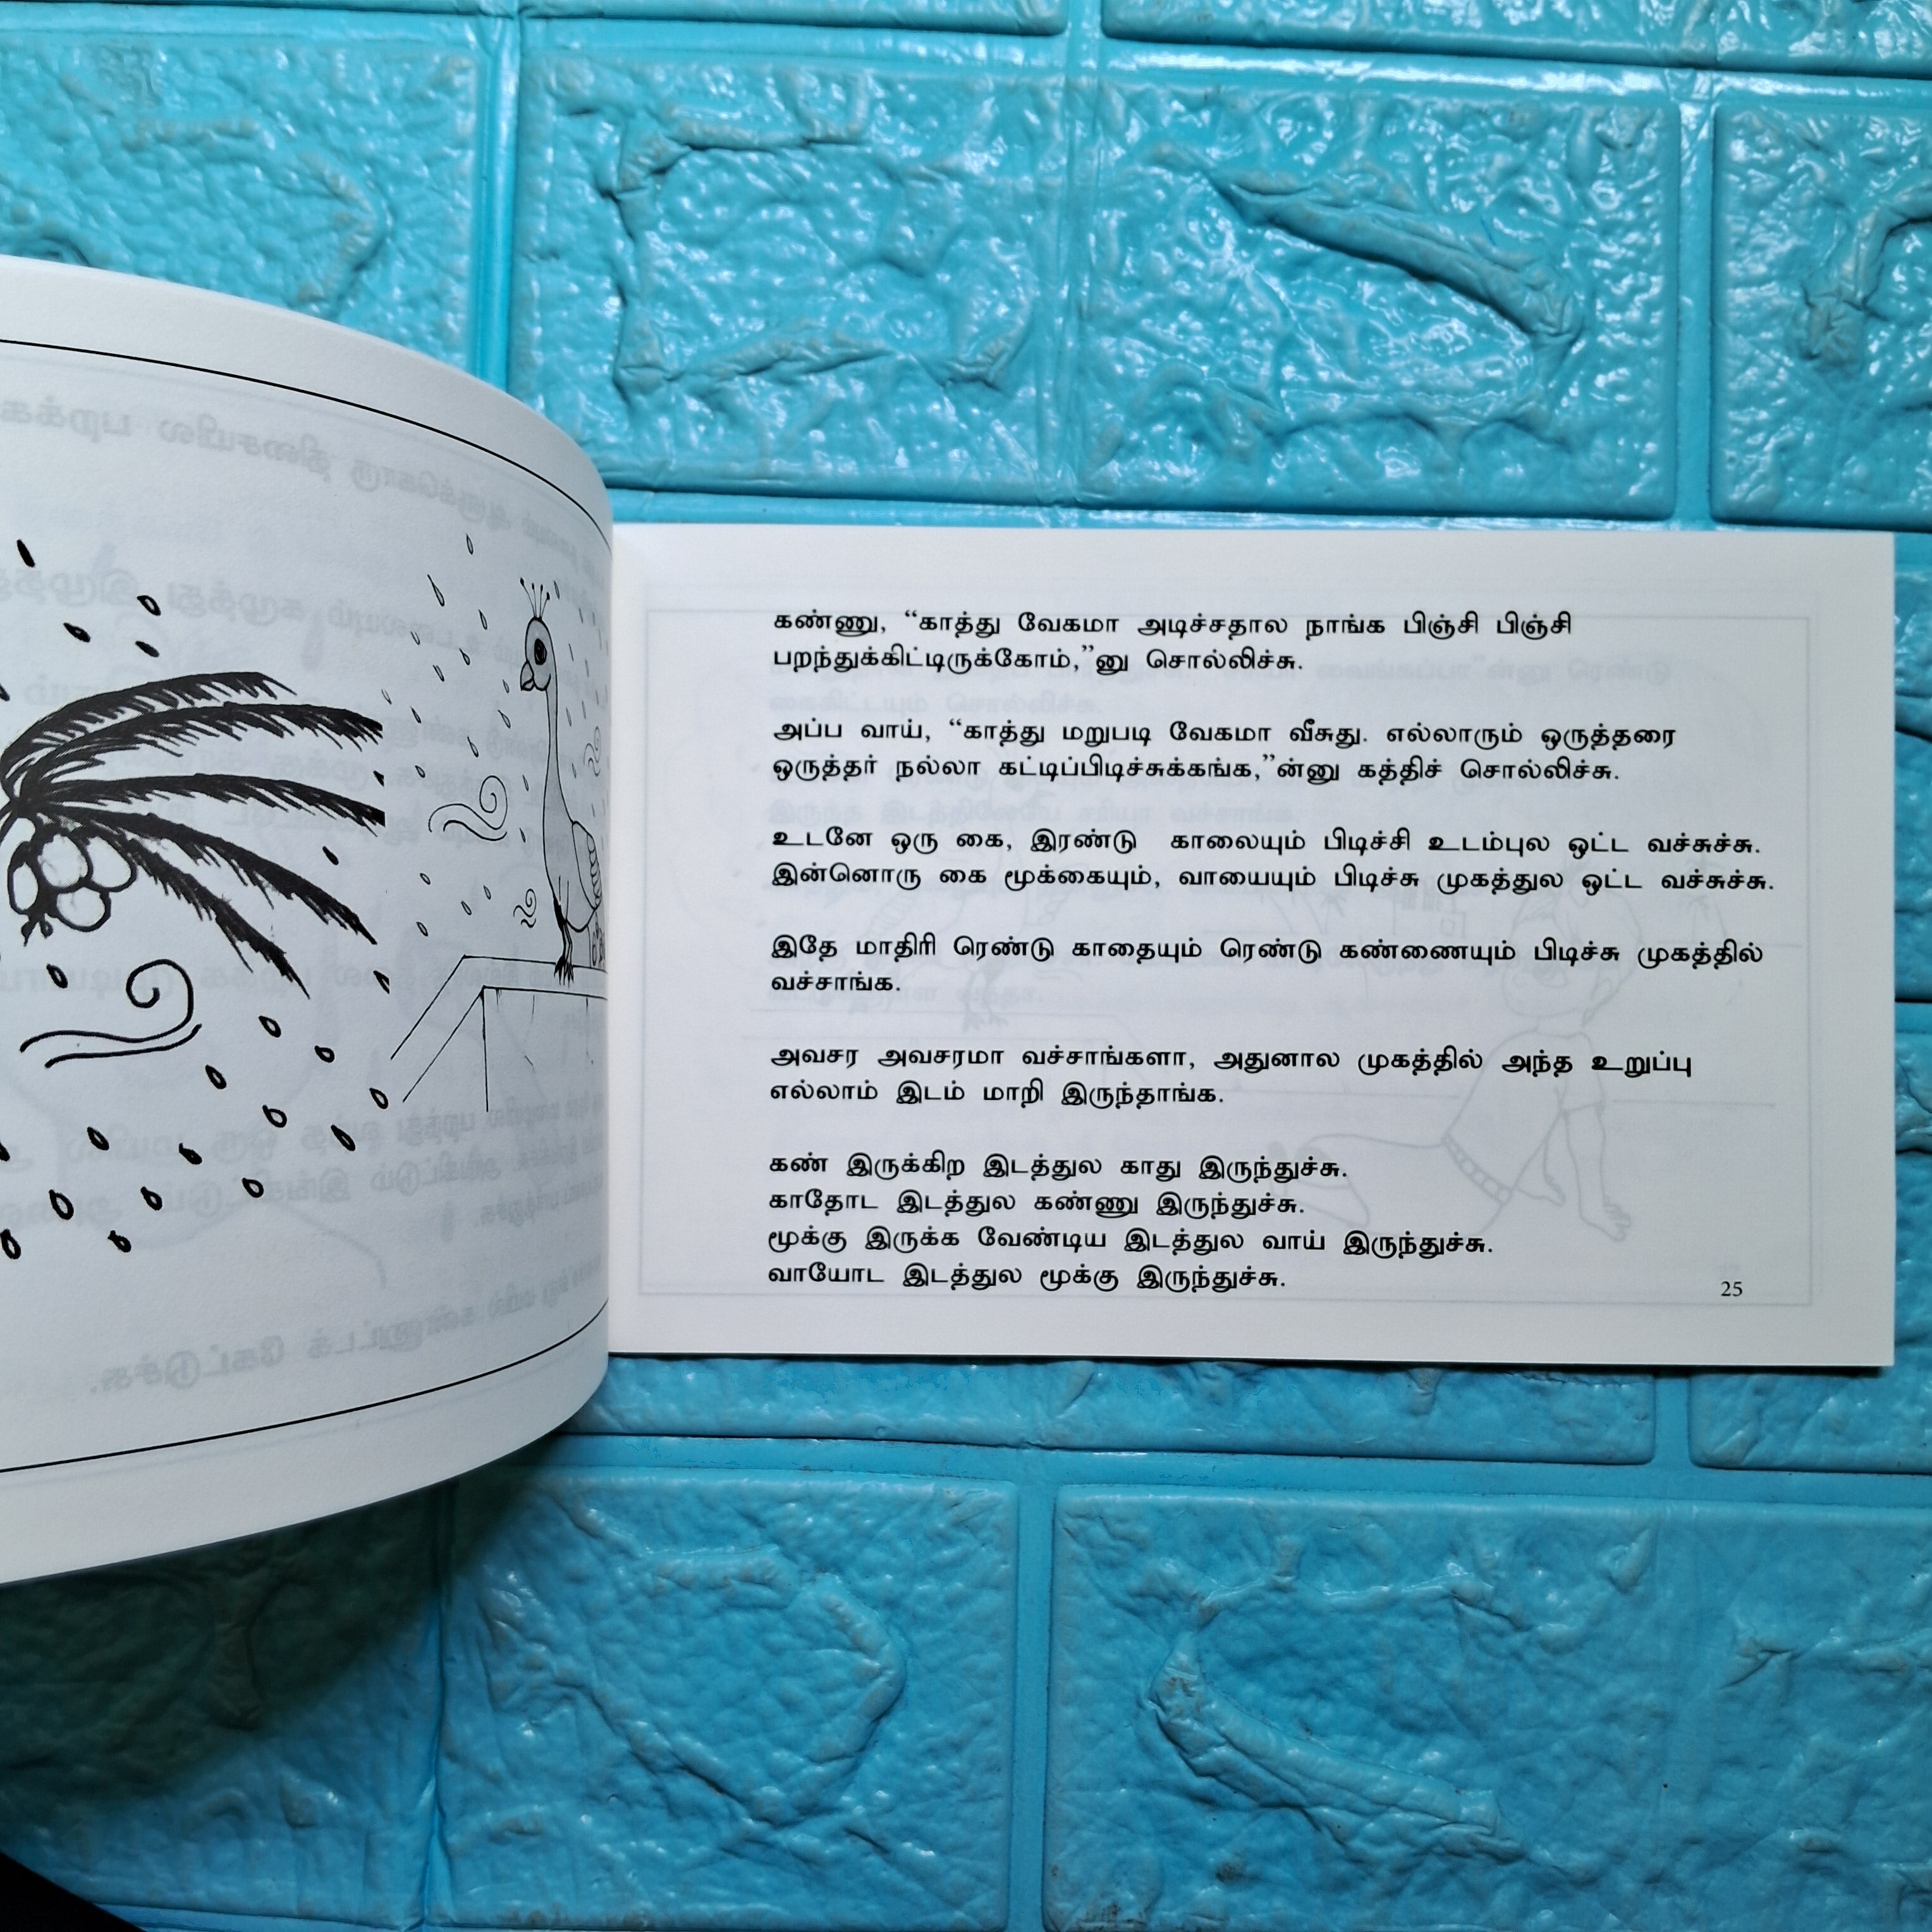 கண்ணு, “காத்து வேகமா அடிச்சதால நாங்க பிஞ்சி பிஞ்சி
பறந்துக்கிட்டிருக்கோம்,”னு சொல்லிச்சு.
அப்ப வாய், “காத்து மறுபடி வேகமா வீசுது. எல்லாரும் ஒருத்தரை
ஒருத்தர் நல்லா கட்டிப்பிடிச்சுக்கங்க,”ன்னு கத்திச் சொல்லிச்சு.
உடனே ஒரு கை, இரண்டு காலையும் பிடிச்சி உடம்புல ஒட்ட வச்சுச்சு.
இன்னொரு கை மூக்கையும், வாயையும் பிடிச்சு முகத்துல ஒட்ட வச்சுச்சு.
இதே மாதிரி ரெண்டு காதையும் ரெண்டு கண்ணையும் பிடிச்சு முகத்தில்
வச்சாங்க.
அவசர அவசரமா வச்சாங்களா, அதுனால முகத்தில் அந்த உறுப்பு
எல்லாம் இடம் மாறி இருந்தாங்க.
கண் இருக்கிற இடத்துல காது இருந்துச்சு.
காதோட இடத்துல கண்ணு இருந்துச்சு.
மூக்கு இருக்க வேண்டிய இடத்துல வாய் இருந்துச்சு.
வாயோட இடத்துல மூக்கு இருந்துச்சு.
25